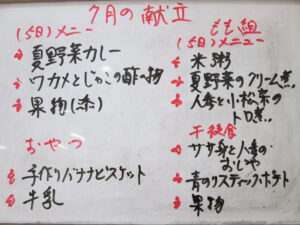 7月の献立
(5日)メニュー
夏野菜カレー
ワカメとじゃこの酢の物
果物(本)
おやつ
手作りバナナビスケット
牛乳
もも組
(5日)メニュー
米粥
夏野菜のクリーム煮
人参と小松菜の
トロ煮
午後食
ササ身と人参の
おじや
青のりスティックポテト
果物